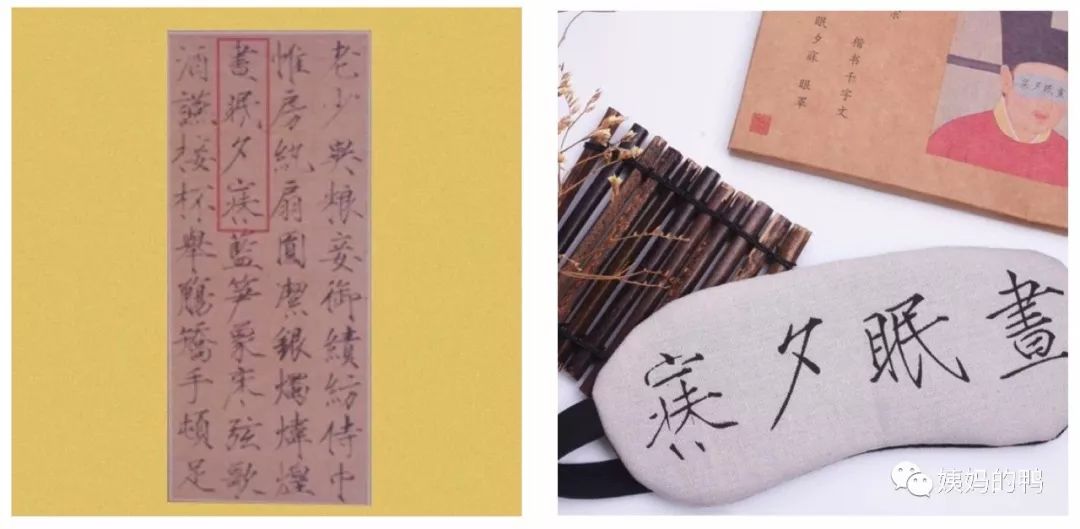 老少異粮妾御績紡侍巾
帷房紈扇圓潔銀燭煒煌
晝眠夕寐藍笋象床弦歌
酒讌接杯舉觴矯手頓足
楷书千字文
眠夕寐 眼罩
寐夕眠晝
晝眠夕寐
姨妈的鸭